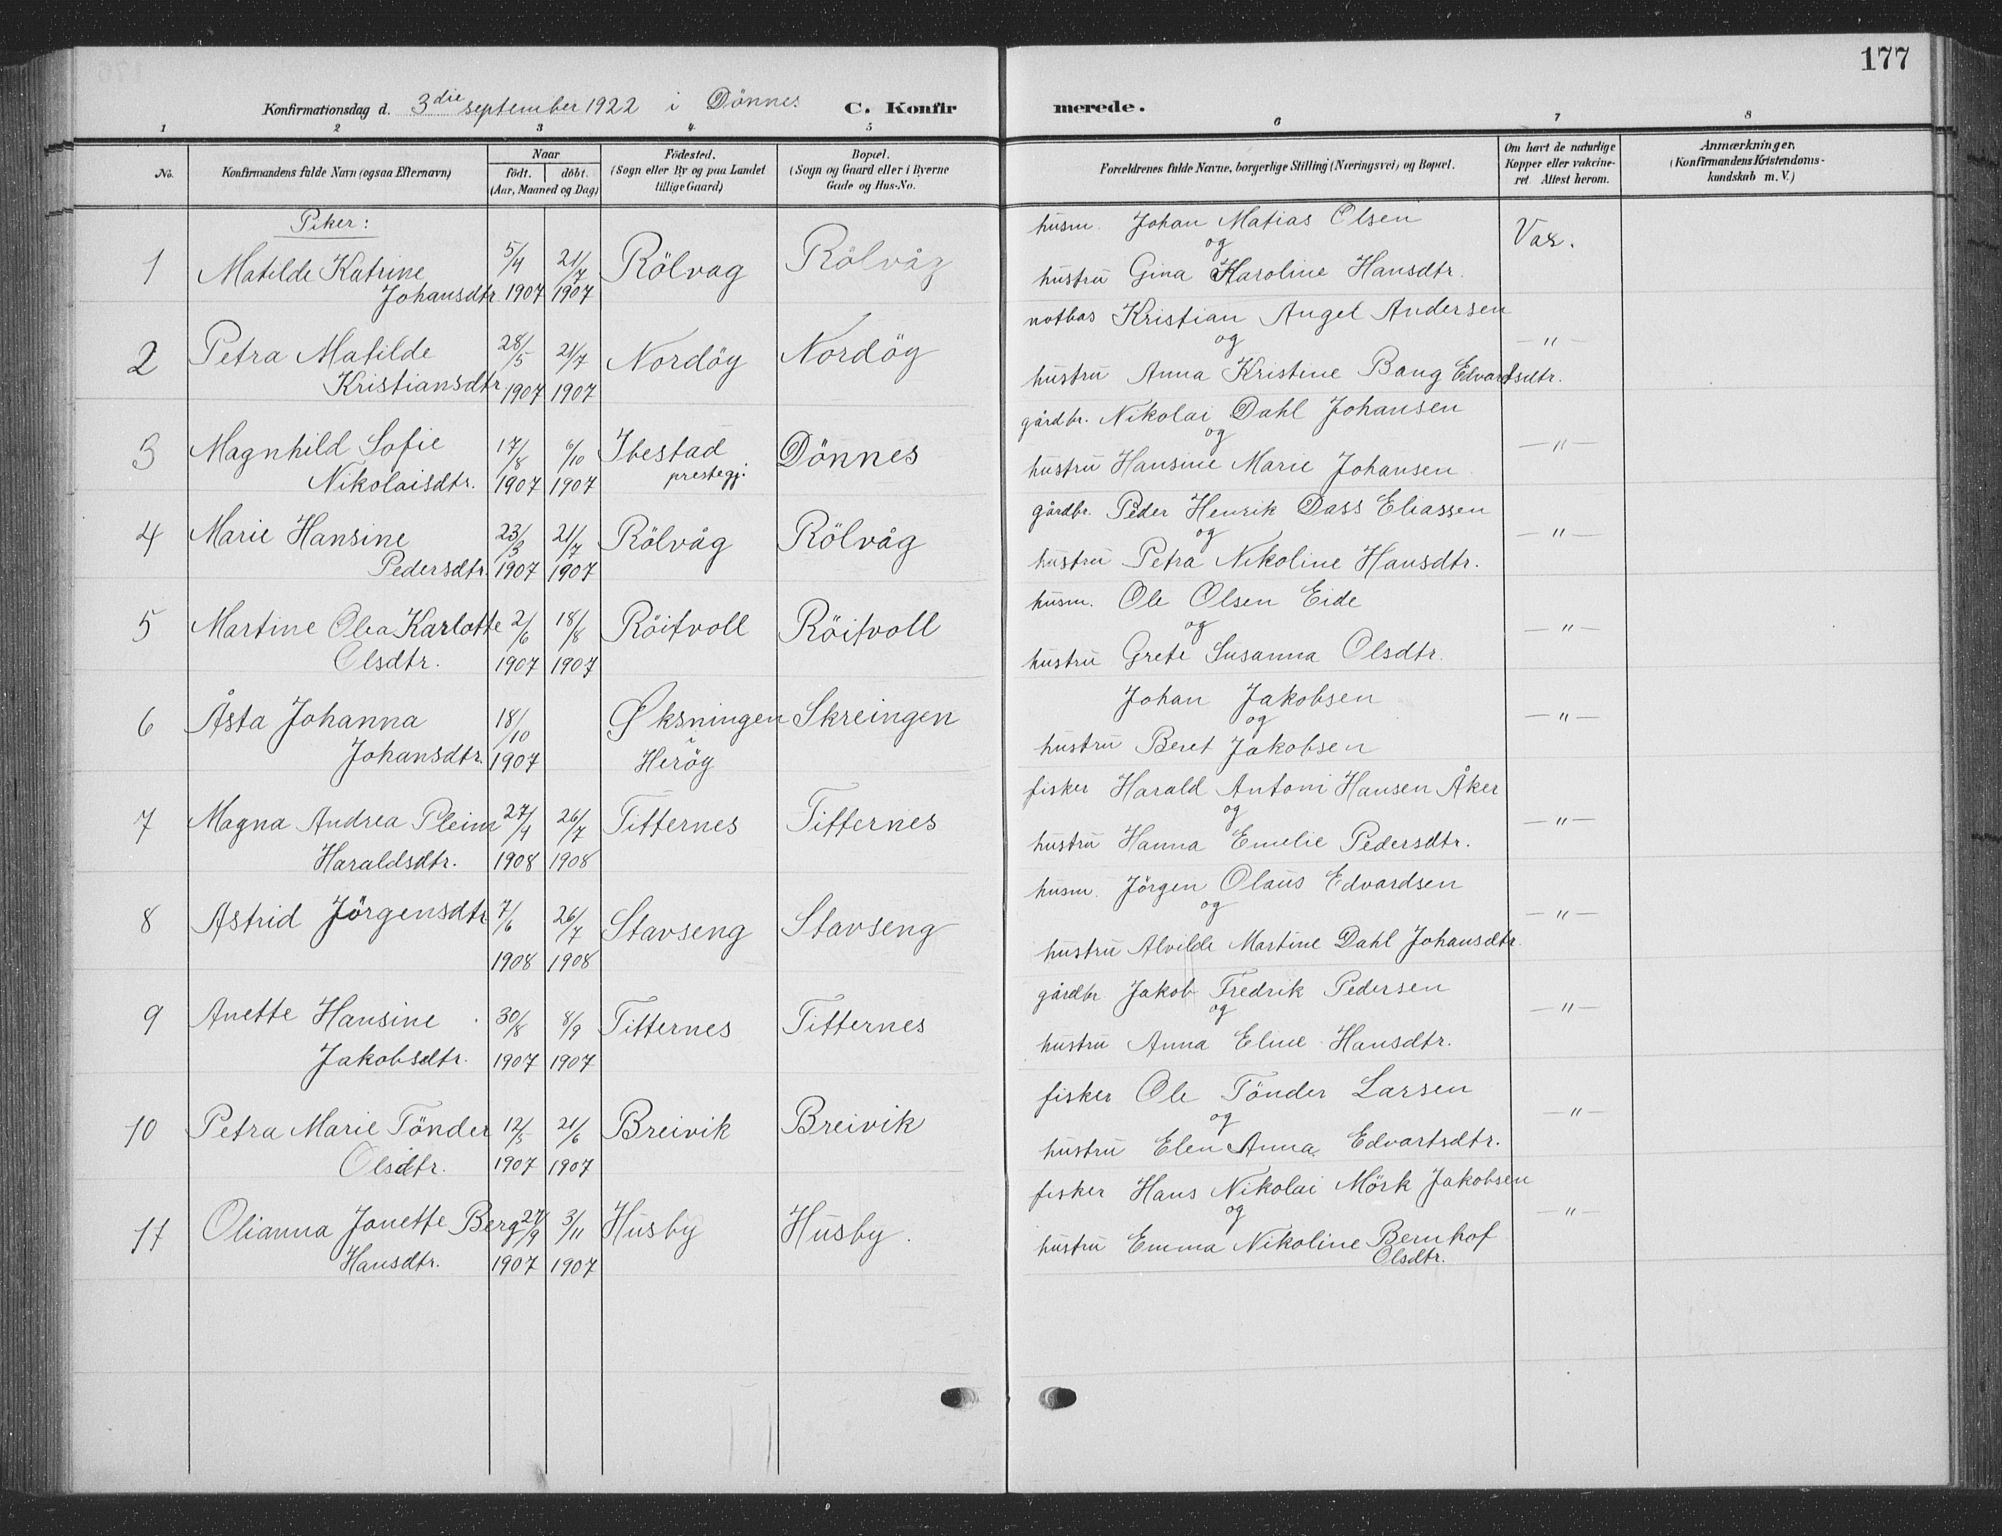 177
Konfirmationsdag d. 3die september 1922 i Dönnes C. Konfirmerede.
1 2 3 4 5 6 7 8
No.
Konfirmandens fulde Navn (ogsaa Efternavn)
Naar
födt. döbt.
(Aar, Maaned og Dag)
Födested.
(Sogn eller By og paa Landet
tillige Gaard)
Bopæl.
(Sogn og Gaard eller i Byerne
Gade og Hus-No.
Forældrenes fulde Navne, borgerlige Stilling (Næringsvei) og Bopæl.
Om havt de naturlige
Kopper eller vakcine-
ret Attest herom.
Anmærkninger.
(Konfirmandens Kristendoms-
kundskab m. V.)
Piker:
1 Matilde Katrine 5/4 21/7 Rölvag Rölvåg husm. Johan Matias Olsen Vax.
og
Johansdtr 1907 1907 hustru Gina Karoline Hansdtr.
2 Petra Matilde 28/5 21/7 Nordöy Nordöy notbas Kristian Angel Andersen — " —
og
Kristiansdtr. 1907 1907 hustru Anna Kristine Bang Edvardsdtr.
3 Magnhild Sofie 17/8 6/10 Ibestad Dönnes gårdbr. Nikolai Dahl Johansen — " —
og
Nikolaisdtr. 1907 1907 prestegj. hustru Hansine Marie Johansen
4 Marie Hansine 23/3 21/7 Rölvåg Rölvåg gårdbr. Peder Henrik Dass Eliassen — " —
og
Pedersdtr. 1907 1907 hustru Petra Nikoline Hansdtr.
5 Martine Olea Karlotte 2/6 18/8 Röitvoll Röitvoll husm. Ole Olsen Eide — " —
og
Olsdtr. 1907 1907 hustru Grete Susanna Olsdtr.
6 Åsta Johanna 18/10 Øksningen Skreingen Johan Jakobsen — " —
i og
Johansdtr. 1907 Heröy hustru Beret Jakobsen
7 Magna Andrea 27/4 26/7 Titternes Titternes fisker Harald Antoni Hansen Åker — " —
og
Haraldsdtr. 1908 1908 hustru Hanna Emelie Pedersdtr.
8 Astrid Jörgensdtr 7/6 26/7 Stavseng Stavseng husm. Jörgen Olaus Edvardsen — " —
og
1908 1908 hustru Alvilde Martine Dahl Johansdtr.
9 Anette Hansine 30/8 8/9 Titternes Titternes gårdbr Jakob Fredrik Pedersen — " —
og
Jakobsdtr. 1907 1907 hustru Anna Eline Hansdtr.
10 Petra Marie Tönder 12/5 21/6 Breivik Breivik fisker Ole Tönder Larsen — " —
og
Olsdtr. 1907 1907 hustru Elen Anna Edvartsdtr.
11 Olianna Jonette Berg 27/9 3/11 Husby Husby. fisker Hans Nikolai Mörk Jakobsen — " —
og
Hansdtr. 1907 1907 hustru Emma Nikoline Bernhof
Olsdtr.